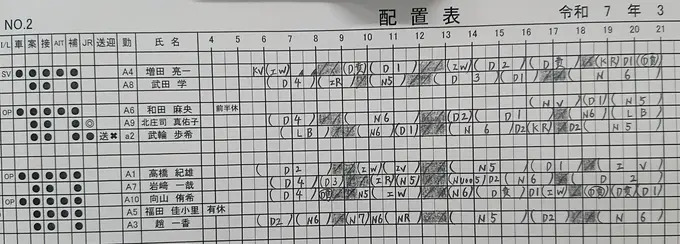 NO.2 配置表 令和 7 年 3
I/L 車 案 接 AIT 補 JR 送迎 勤 氏 名 4 5 6 7 8 9 10 11 12 13 14 15 16 17 18 19 20 21
SV ● ● ● ● ● A4 増田 亮一 KV (IW) (D責) (D1) (IW) (D2) (D責) (KR) D1
● ● ● A8 武田 学 (D4) (IR) (N5) (D3) (D1) (N6)
OP ● ● ● ● ● A6 和田 麻央 前半休 (NV) (D1) (N5)
● ● ● ◎ A9 北庄司 真佑子 (D4) (N5) (D2) (D1) (N6) (LB)
● ● ● ● 送✖ a2 武輪 歩希 (LB) (N6) (N6) D2 (KR) D2 (N5)
OP ● ● ● ● ● A1 高橋 紀雄 (D2) (IW) (IV) (N5) (D1) (IV)
● ● ● A7 岩崎 一哉 (D4) (D3) (IR) (N5) D2 (N6) (D2)
OP ● ● ● ● ● A10 向山 侑希 (D4) N5 (IW) (N6) (D責) D1 (IW) (D責) (D1)
● ● ● A5 福田 佳小里 有休
● ● ● A3 趙 一香 (D2) (N6) (N7) N6 (NR) (N5) (D2) (N6)